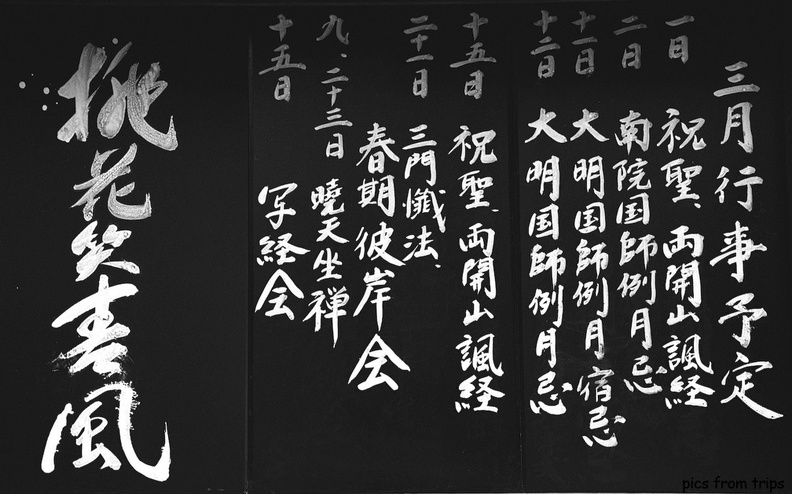 三月行事予定
一日 祝聖、両開山諷経
二日 南院国師例月忌
十一日 大明国師例月宿忌
十二日 大明国師例月忌
十五日 祝聖、両開山諷経
二十一日 三門懺法、
春期彼岸会
九、二十三日 暁天坐禅
十五日 写経会
桃花笑春風
pics from trips